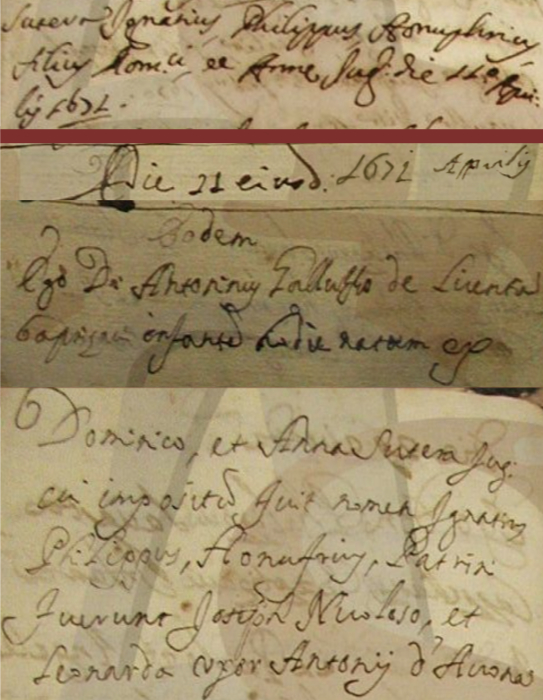 Sutera Ignatius Philippus Honuphrius
filius Dom.ci, et Anne Jug: die 11º Apri-
lij 1671.
Die 21 eiusd: 1671 Aprilij
Eodem
Ego Dr Antoninus Gallusso de Licentia
baptizavi infantē hodie natum ex
Dominico, et Anna Sutera Jug:
cui impositū fuit nomen Ignatius
Philippus, Honufrius, Patrini
fuerunt Joseph Nicoloso, et
Leonarda uxor Antonij d'